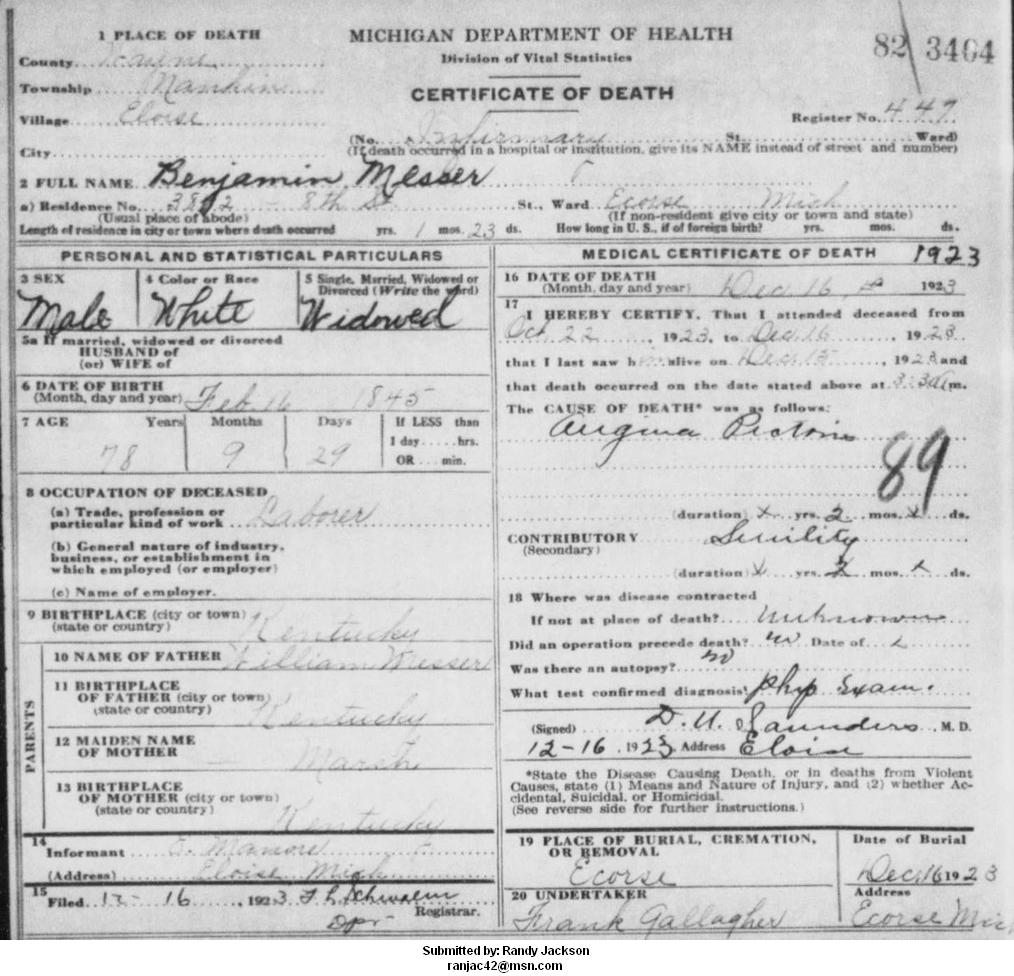 1 PLACE OF DEATH
County Wayne
Township
Village Eloise
City
MICHIGAN DEPARTMENT OF HEALTH
Division of Vital Statistics
CERTIFICATE OF DEATH
82 3404
Register No. 447
(No. Infirmary St. Ward)
(If death occurred in a hospital or institution, give its NAME instead of street and number)
2 FULL NAME Benjamin Messer
a) Residence No. 8th St St., Ward Ecorse Mich
(Usual place of abode) (If non-resident give city or town and state)
Length of residence in city or town where death occurred yrs. 1 mos. 23 ds. How long in U. S., if of foreign birth? yrs. mos. ds.
PERSONAL AND STATISTICAL PARTICULARS
3 SEX
Male
4 Color or Race
White
5 Single, Married, Widowed or
Divorced (Write the word)
Widowed
5a If married, widowed or divorced
HUSBAND of
(or) WIFE of
6 DATE OF BIRTH
(Month, day and year) Feb. 16 1845
7 AGE Years Months Days If LESS than
1 day hrs.
78 9 29 OR min.
8 OCCUPATION OF DECEASED
(a) Trade, profession or
particular kind of work Laborer
(b) General nature of industry,
business, or establishment in
which employed (or employer)
(c) Name of employer.
9 BIRTHPLACE (city or town)
(state or country) Kentucky
PARENTS
10 NAME OF FATHER William Messer
11 BIRTHPLACE
OF FATHER (city or town)
(state or country) Kentucky
12 MAIDEN NAME
OF MOTHER — Marsh
13 BIRTHPLACE
OF MOTHER (city or town)
(state or country) Kentucky
14
Informant
(Address) Eloise Mich
15
Filed 12 - 16, 1923
Registrar.
MEDICAL CERTIFICATE OF DEATH 1923
16 DATE OF DEATH
(Month, day and year) Dec. 16, 1923
17
I HEREBY CERTIFY, That I attended deceased from
Oct. 22, 1923, to Dec. 16, 1923
that I last saw him alive on Dec. 15, 1923 and
that death occurred on the date stated above at 3:30 a m.
The CAUSE OF DEATH* was as follows:
Angina Pectoris
89
(duration) x yrs. 2 mos. x ds.
CONTRIBUTORY Senility
(Secondary)
(duration) x yrs. 2 mos. x ds.
18 Where was disease contracted
If not at place of death? unknown
Did an operation precede death? no Date of
Was there an autopsy? no
What test confirmed diagnosis? Phys Exam.
(Signed) D. U. Saunders, M. D.
12-16, 1923, Address Eloise
*State the Disease Causing Death, or in deaths from Violent
Causes, state (1) Means and Nature of Injury, and (2) whether Ac-
cidental, Suicidal, or Homicidal.
(See reverse side for further instructions.)
19 PLACE OF BURIAL, CREMATION,
OR REMOVAL
Ecorse
Date of Burial
Dec. 16 1923
20 UNDERTAKER
Frank Gallagher
Address
Ecorse Mich
Submitted by: Randy Jackson
ranjac42@msn.com